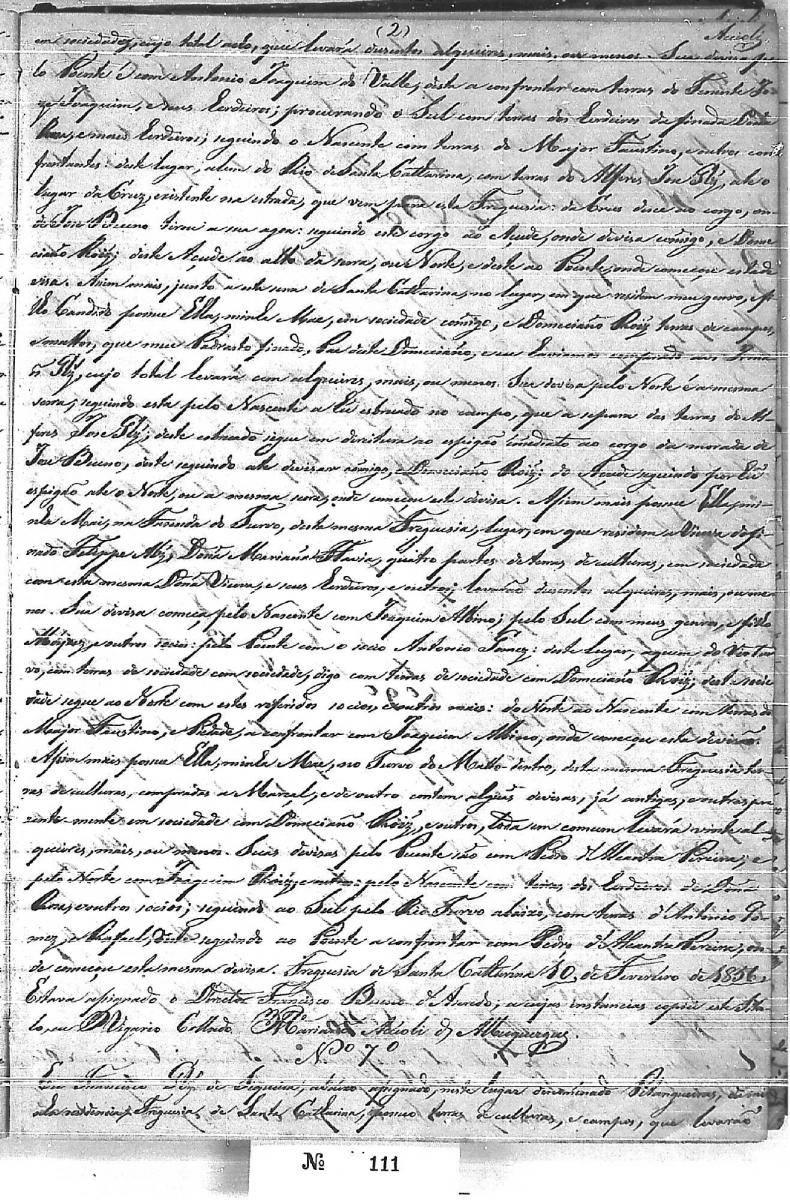 (2)
Accioli
em sociedades, cujo total acho, que levará duzentos alqueires, mais, ou menos. Sua divisa pe-
lo Poente é com Antonio Joaquim do Valle, deste a confrontar com terras do Tenente Jo-
ze Joaquim, e seus Erdeiros; procurando o Sul com terras dos Erdeiros da finada Dona
Roza, e mais Erdeiros; seguindo o Nascente com terras do Major Faustino, e outros con-
frontantes: deste lugar, alem do Rio de Santa Catharina, com terras do Alferes Joze Glz, ate o
lugar da Cruz, existente na estrada, que vem para esta Freguesia: da Cruz dece no corgo, on-
de Joze Bueno tirou a sua agoa: seguindo este corgo ao Açude, onde divisa comigo, e Dome-
ciano Roiz; deste Açude ao alto da serra, ou Norte, e deste ao Poente, onde começou esta de-
visa. Assim mais, junto a esta serra de Santa Catharina, no lugar, em que residem meu genro, e fi-
lho Candido possue Ella, minha Mae, em sociedade comigo, e Domeciano Roiz terras de campos,
e mattos, que meu Padrasto finado, Pae deste Domeciano, e eu haviamos comprado aos
Glz, cujo total levará cem alqueires, mais, ou menos. Sua devisa pelo Norte é a mesma
serra; seguindo esta pelo Nascente a hũ esbraado no campo, que a separa das terras do Al-
feres Joze Glz; deste segue em direitura ao espigão immediato ao corgo da morada de
Joze Bueno, deste seguindo ate devisar comigo, Domeciano Roiz: do Açude seguindo por hũ
espigão ate o Norte, ou a mesma serra, onde começou esta devisa. Assim mais possue Ella, mi-
nha Mai, na Fazenda do Turvo, desta mesma Freguesia, lugar, em que residem a Viuva do fi-
nado Felippe Mz, Dona Mariana Flavia, quatro partes de terras de culturas, em sociedade
com esta mesma Dona Viuva, e seus Erdeiros, e outros; levarão duzentos alqueires, mais, ou me-
nos. Sua devisa começa pelo Nascente com Joaquim Albino; pelo Sul com meus genros, e filho
Moizes, e outros socios: pelo Poente com o socio Antonio Gomez: deste lugar, aquem do Rio Tur-
vo, com terras de sociedade com sociedade, digo com terras de sociedade com Domeciano Roiz; desta socie-
dade segue ao Norte com estes referidos socios, e outros mais: do Norte ao Nascente com terras do
Major Faustino, e Piedade, a confrontar com Joaquim Albino, onde começou esta devisão.
Assim mais possue Ella, minha Mae, no Turvo do Matto-dentro, desta mesma Freguesia ter-
ras de culturas, compradas a Marçal, e de outro contem algũas devisas, já antigas, e outras pre-
zente-mente em sociedade com Domeciano Roiz, e outros, toda em comum levará vinte al-
queires, mais, ou menos. Suas divisas pelo Poente são com Pedro d'Alcantra Pereira; e
pelo Norte com Joaquim Roiz, e outros: pelo Nascente com terras dos Erdeiros de Dona
Roza, e outros socios; seguindo ao Sul pelo Rio Turvo abaixo, com terras d'Antonio Go-
mez, e Rafael, deste seguindo ao Poente a confrontar com Pedro d'Alcantra Pereira, on-
de começou esta mesma devisa. Freguesia de Santa Catharina 10 de Fevereiro de 1856.
Estava assignado o Director Francisco Bueno d'Azeredo; a cujas instancias copiei este titu-
lo, eu Vigario Collado Mariano Accioli de Albuquerque.
Nº 7º
Eu Francisco de Siqueira, abaixo assignado, neste lugar denominado Pitangueiras, de mi-
nha residencia, Freguesia de Santa Catharina, possuo terras de culturas, e campos, que levarão
Nº 111